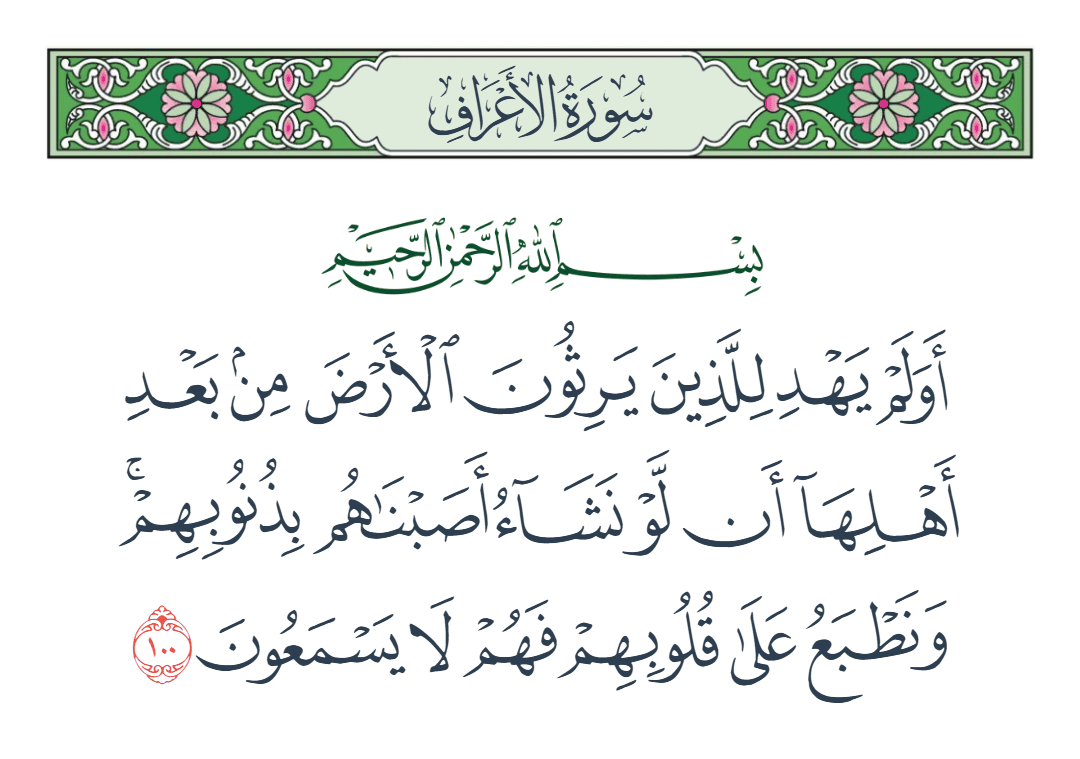 سُورَةُ الأَعْرَافِ
بِسْمِ ٱللَّهِ ٱلرَّحْمَٰنِ ٱلرَّحِيمِ
أَوَلَمْ يَهْدِ لِلَّذِينَ يَرِثُونَ ٱلْأَرْضَ مِنۢ بَعْدِ
أَهْلِهَآ أَن لَّوْ نَشَآءُ أَصَبْنَٰهُم بِذُنُوبِهِمْ ۚ
وَنَطْبَعُ عَلَىٰ قُلُوبِهِمْ فَهُمْ لَا يَسْمَعُونَ ١٠٠